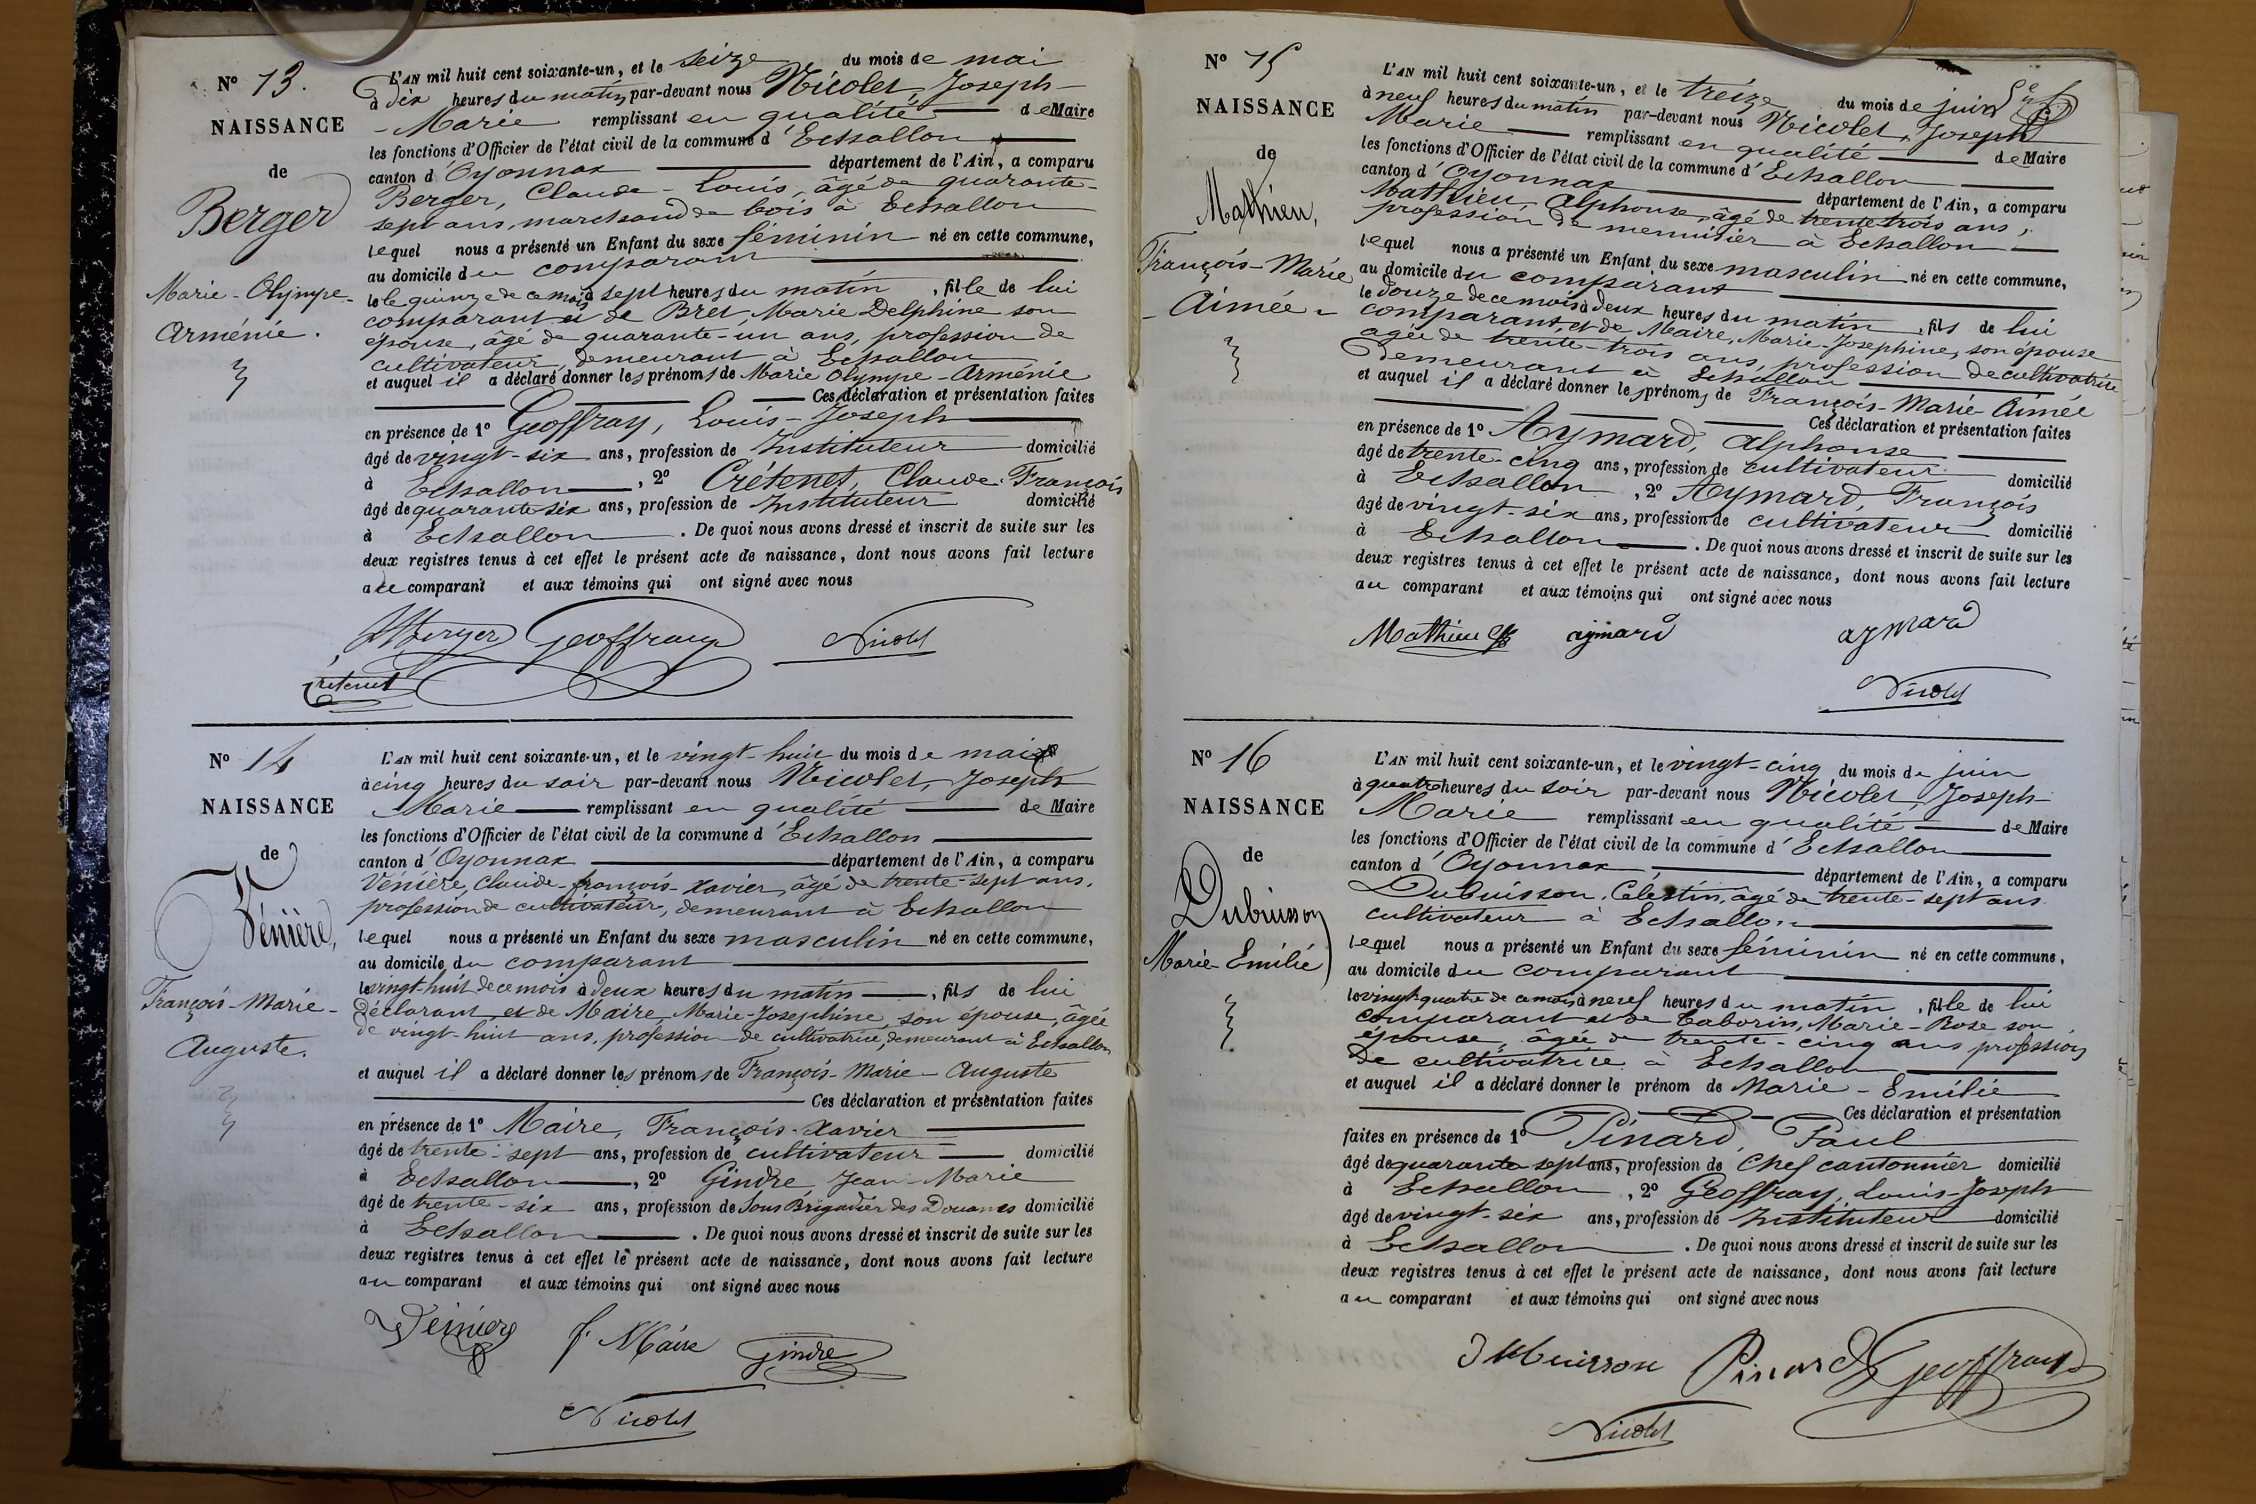 N° 13.
NAISSANCE
de
Berger
Marie-Olympe-
Arménie.
L'AN mil huit cent soixante-un, et le seize du mois de mai
à dix heures du matin par-devant nous Nicolet, Joseph-
-Marie remplissant en qualité de Maire
les fonctions d'Officier de l'état civil de la commune d'Echallon
canton d'Oyonnax département de l'Ain, a comparu
Berger, Claude-Louis, âgé de quarante-
sept ans, marchand de bois à Echallon
lequel nous a présenté un Enfant du sexe féminin né en cette commune,
au domicile du comparant
le quinze de ce mois à sept heures du matin, fille de lui
comparant et de Bret, Marie Delphine son
épouse, âgé de quarante-un ans, profession de
cultivateur, demeurant à Echallon
et auquel il a déclaré donner les prénoms de Marie Olympe-Arménie
Ces déclaration et présentation faites
en présence de 1° Geoffray, Louis-Joseph
âgé de vingt-six ans, profession de Instituteur domicilié
à Echallon, 2° Crétenet, Claude-François
âgé de quarante-six ans, profession de Instituteur domicilié
à Echallon. De quoi nous avons dressé et inscrit de suite sur les
deux registres tenus à cet effet le présent acte de naissance, dont nous avons fait lecture
au comparant et aux témoins qui ont signé avec nous
Berger Geoffray Nicolet
Cretenet
N° 14
NAISSANCE
de
Vénière,
François-Marie-
Auguste.
L'AN mil huit cent soixante-un, et le vingt-huit du mois de mai
à cinq heures du soir par-devant nous Nicolet, Joseph
Marie remplissant en qualité de Maire
les fonctions d'Officier de l'état civil de la commune d'Echallon
canton d'Oyonnax département de l'Ain, a comparu
Vénière, Claude-françois-Xavier, âgé de trente-sept ans,
profession de cultivateur, demeurant à Echallon
lequel nous a présenté un Enfant du sexe masculin né en cette commune,
au domicile du comparant
le vingt-huit de ce mois à deux heures du matin, fils de lui
déclarant et de Maire, Marie-Josephine, son épouse, âgée
de vingt-huit ans, profession de cultivatrice, demeurant à Echallon
et auquel il a déclaré donner les prénoms de François-Marie-Auguste
Ces déclaration et présentation faites
en présence de 1° Maire, François-Xavier
âgé de trente-sept ans, profession de cultivateur domicilié
à Echallon, 2° Gindre Jean-Marie
âgé de trente-six ans, profession de Sous Brigadier des Douanes domicilié
à Echallon. De quoi nous avons dressé et inscrit de suite sur les
deux registres tenus à cet effet le présent acte de naissance, dont nous avons fait lecture
au comparant et aux témoins qui ont signé avec nous
Vénière f. Maire Gindre
Nicolet
N° 15
NAISSANCE
de
Mathieu,
François-Marie
-Aimée-
L'AN mil huit cent soixante-un, et le treize du mois de juin
à neuf heures du matin par-devant nous Nicolet, Joseph
Marie remplissant en qualité de Maire
les fonctions d'Officier de l'état civil de la commune d'Echallon
canton d'Oyonnax département de l'Ain, a comparu
Mathieu, Alphonse, âgé de trente trois ans,
profession de menuisier à Echallon
lequel nous a présenté un Enfant du sexe masculin né en cette commune,
au domicile du comparant
le douze de ce mois à deux heures du matin, fils de lui
comparant et de Maire, Marie-Josephine, son épouse
agée de trente-trois ans, profession de cultivatrice
demeurant à Echallon
et auquel il a déclaré donner les prénoms de François-Marie-Aimée
Ces déclaration et présentation faites
en présence de 1° Aymard, Alphonse
âgé de trente-cinq ans, profession de cultivateur domicilié
à Echallon, 2° Aymard, François
âgé de vingt-six ans, profession de cultivateur domicilié
à Echallon. De quoi nous avons dressé et inscrit de suite sur les
deux registres tenus à cet effet le présent acte de naissance, dont nous avons fait lecture
au comparant et aux témoins qui ont signé avec nous
Mathieu aymard aymard
Nicolet
N° 16
NAISSANCE
de
Dubuisson
Marie-Emilie
L'AN mil huit cent soixante-un, et le vingt-cinq du mois de juin
à quatre heures du soir par-devant nous Nicolet, Joseph-
Marie remplissant en qualité de Maire
les fonctions d'Officier de l'état civil de la commune d'Echallon
canton d'Oyonnax département de l'Ain, a comparu
Dubuisson, Célestin, âgé de trente-sept ans
cultivateur à Echallon
lequel nous a présenté un Enfant du sexe féminin né en cette commune,
au domicile du comparant
le vingt quatre de ce mois à neuf heures du matin, fille de lui
comparant et de Taborin, Marie-Rose son
épouse, âgée de trente-cinq ans profession
de cultivatrice à Echallon
et auquel il a déclaré donner le prénom de Marie-Emilie
Ces déclaration et présentation
faites en présence de 1° Pinard, Paul
âgé de quarante sept ans, profession de Chef cantonnier domicilié
à Echallon, 2° Geoffray, Louis-Joseph
âgé de vingt-six ans, profession de Instituteur domicilié
à Echallon. De quoi nous avons dressé et inscrit de suite sur les
deux registres tenus à cet effet le présent acte de naissance, dont nous avons fait lecture
au comparant et aux témoins qui ont signé avec nous
Dubuisson Pinard Geoffray
Nicolet